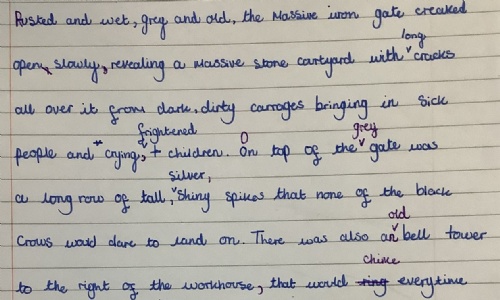 Rusted and wet, grey and old, the massive iron gate creaked
long
open, slowly, revealing a massive stone cartyard with cracks
all over it from dark, dirty carrages bringing in sick
frightened O grey
people and crying, + children. On top of the gate was
silver,
a long row of tall, shiny spikes that none of the black
old
crows would dare to land on. There was also an bell tower
chime
to the right of the workhouse, that would ring everytime